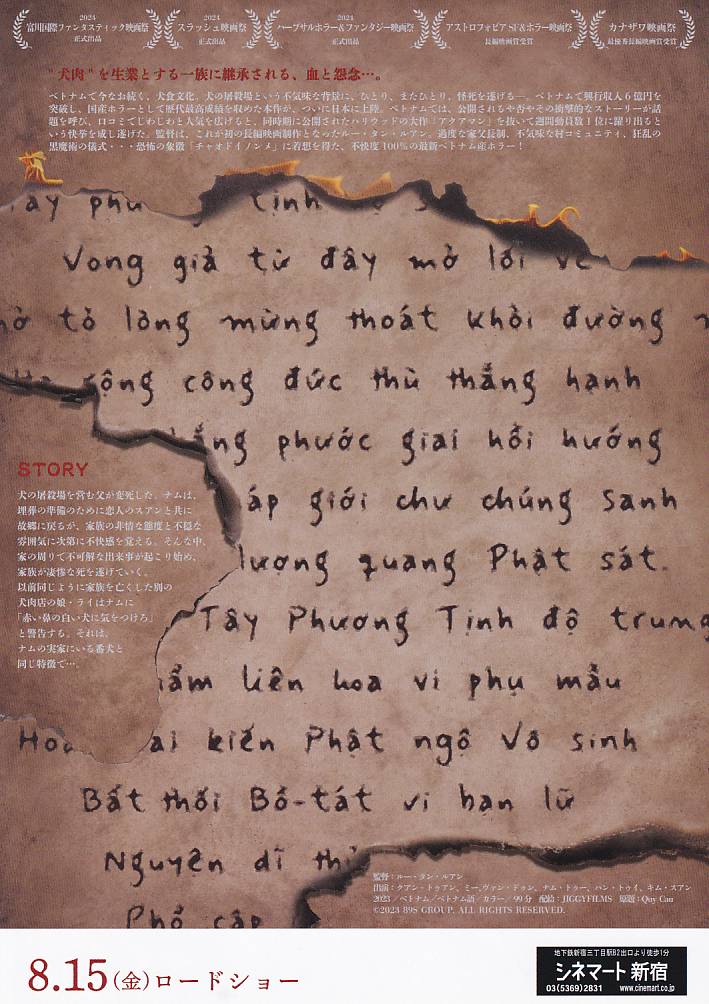 2024 富川国際ファンタスティック映画祭 正式出品
2024 スラッシュ映画祭 正式出品
2024 ハープサルホラー&ファンタジー映画祭 正式出品
アストロフォビア SF&ホラー映画祭 長編映画賞受賞
カナザワ映画祭 最優秀長編映画賞受賞
"犬肉"を生業とする一族に継承される、血と怨念…。
ベトナムで今なお続く、犬食文化。犬の屠殺場という不気味な背景に、ひとり、またひとり、怪死を遂げる―。ベトナムで興行収入6億円を
突破し、国産ホラーとして歴代最高成績を収めた本作が、ついに日本に上陸。ベトナムでは、公開されるや否やその衝撃的なストーリーが話
題を呼び、口コミでじわじわと人気を広げると、同時期に公開されたハリウッドの大作「アクアマン」を抜いて週間動員数1位に躍り出ると
いう快挙を成し遂げた。監督は、これが初の長編映画制作となったルー・タン・ルアン。過度な家父長制、不気味な村コミュニティ、狂乱の
黒魔術の儀式・・・恐怖の象徴「チャオドイノンメ」に着想を得た、不快度100%の最新ベトナム産ホラー!
tịnh
Vong giả từ đây mở lối về
tỏ lòng mừng thoát khỏi đường
rộng công đức thù thắng hạnh
phước giai hồi hướng
giới chư chúng sanh
lượng quang Phật sát.
Tây Phương Tịnh độ trung
liên hoa vi phụ mẫu
kiến Phật ngộ Vô sinh
Bất thối Bồ-tát vi bạn lữ
Nguyện dĩ
Phổ cập
STORY
犬の屠殺場を営む父が変死した。ナムは、
埋葬の準備のために恋人のスアンと共に
故郷に戻るが、家族の非情な態度と不穏な
雰囲気に次第に不快感を覚える。そんな中、
家の周りで不可解な出来事が起こり始め、
家族が凄惨な死を遂げていく。
以前同じように家族を亡くした別の
犬肉店の娘・ライはナムに
「赤い鼻の白い犬に気をつけろ」
と警告する。それは、
ナムの実家にいる番犬と
同じ特徴で…。
監督:ルー・タン・ルアン
出演:クアン・トゥアン、ミー、ヴァン・ドゥン、ナム・トゥー、ハン・トゥイ、キム・スアン
2023/ベトナム/ベトナム語/カラー/99分 配給:JIGGYFILMS 原題:Quỷ Cẩu
©2023 89S GROUP. ALL RIGHTS RESERVED.
8.15(金)ロードショー
地下鉄新宿三丁目駅B2出口より徒歩1分
シネマート新宿
03(5369)2831 www.cinemart.co.jp